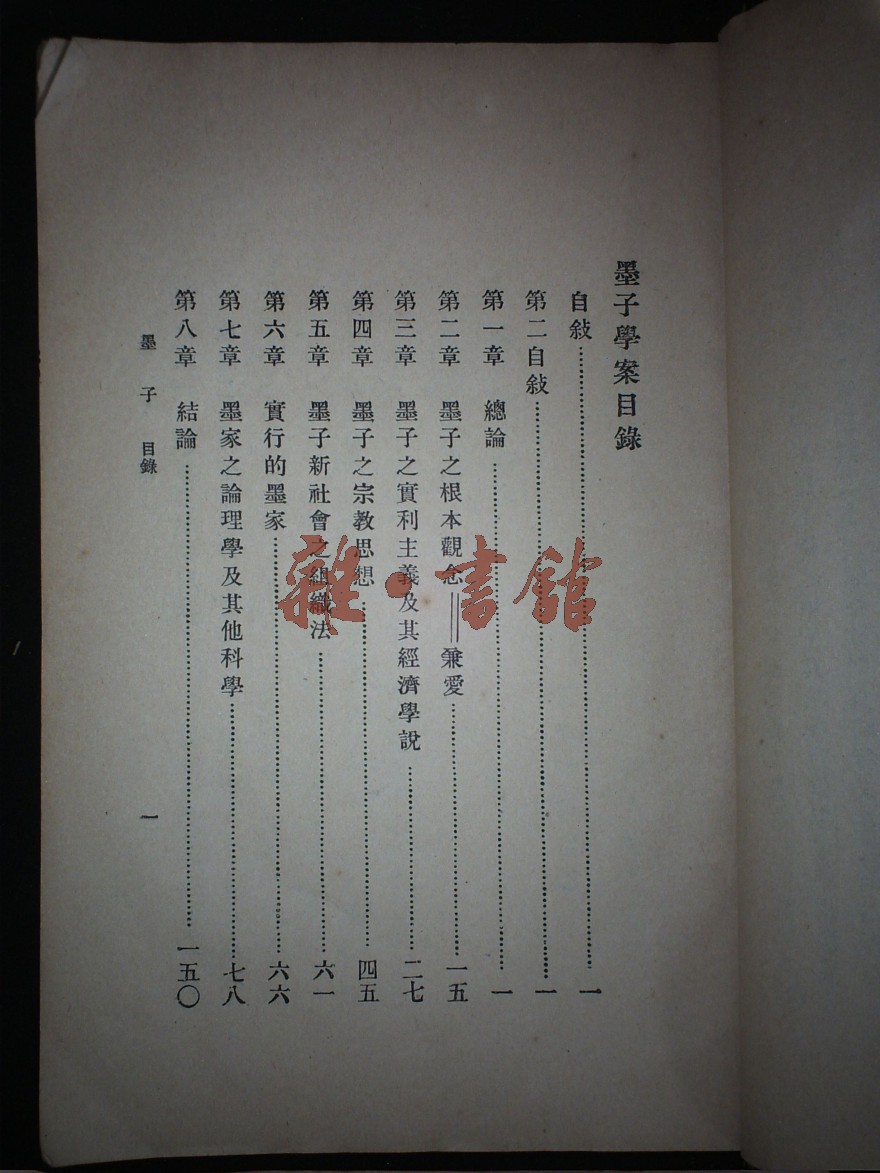 墨子學案目錄
自敍……一
第二自敍……一
第一章 總論……一
第二章 墨子之根本觀念——兼愛……一五
第三章 墨子之實利主義及其經濟學說……二七
第四章 墨子之宗教思想……四五
第五章 墨子新社會之組織法……六一
第六章 實行的墨家……六六
第七章 墨家之論理學及其他科學……七八
第八章 結論……一五〇
墨子 目錄 一
雜·書館